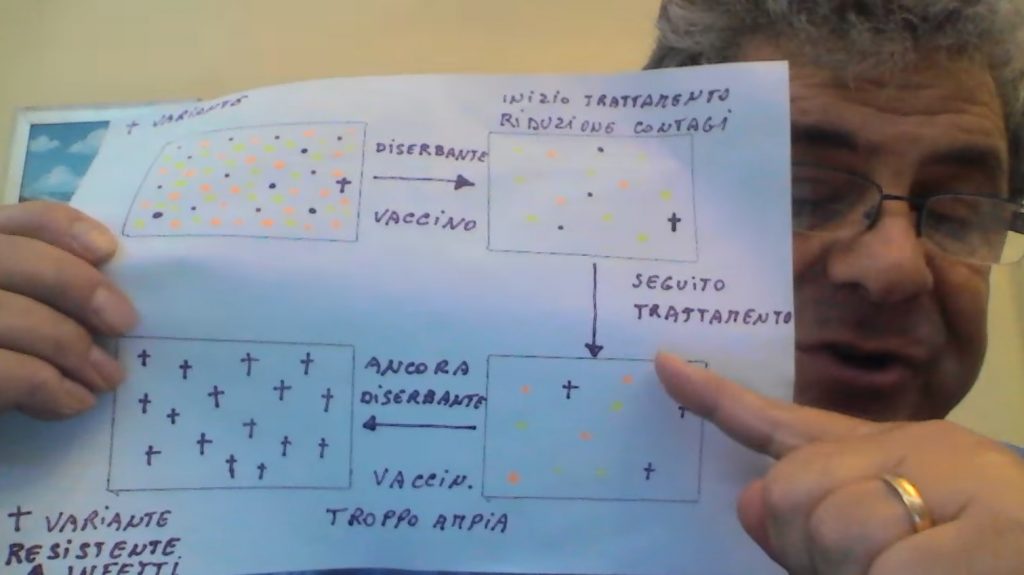 + VARIANTE
INIZIO TRATTAMENTO
RIDUZIONE CONTAGI
DISERBANTE
VACCINO
SEGUITO
TRATTAMENTO
ANCORA
DISERBANTE
VACCIN.
TROPPO AMPIA
+ VARIANTE
RESISTENTE
INFETTI